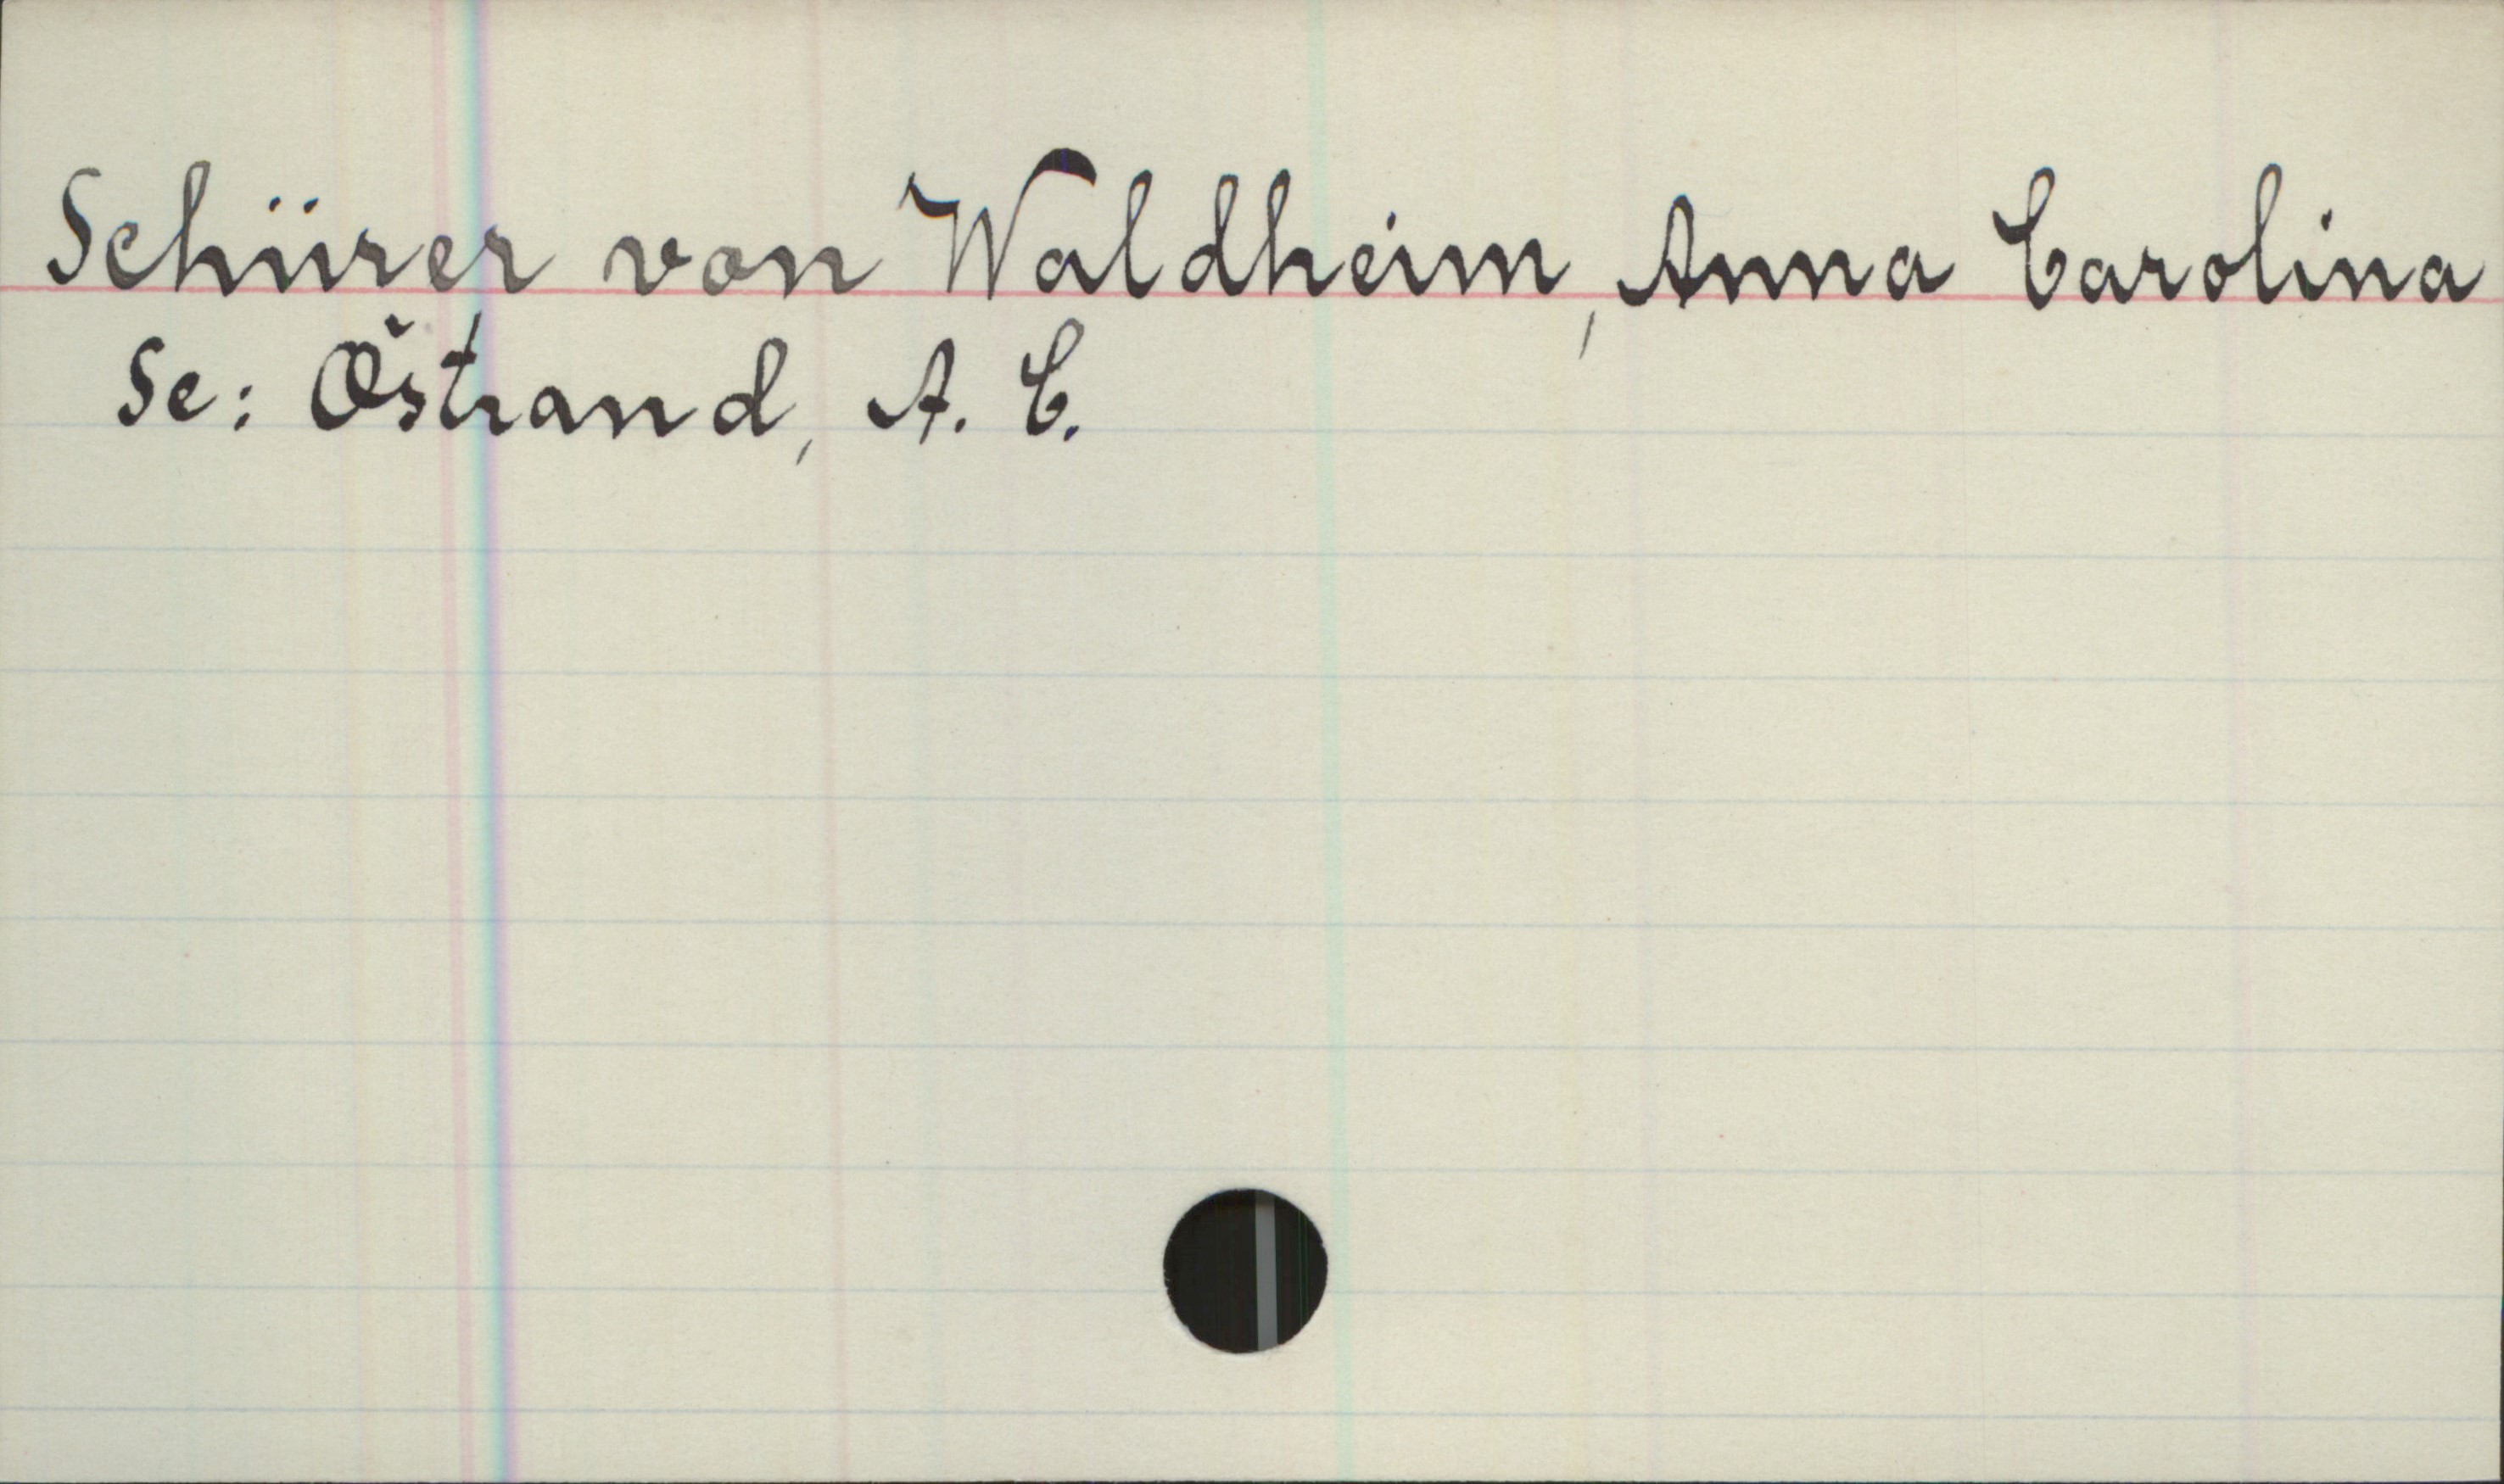 Schürer von Waldheim, Anna Carolina
Se: Östrand, A. C.